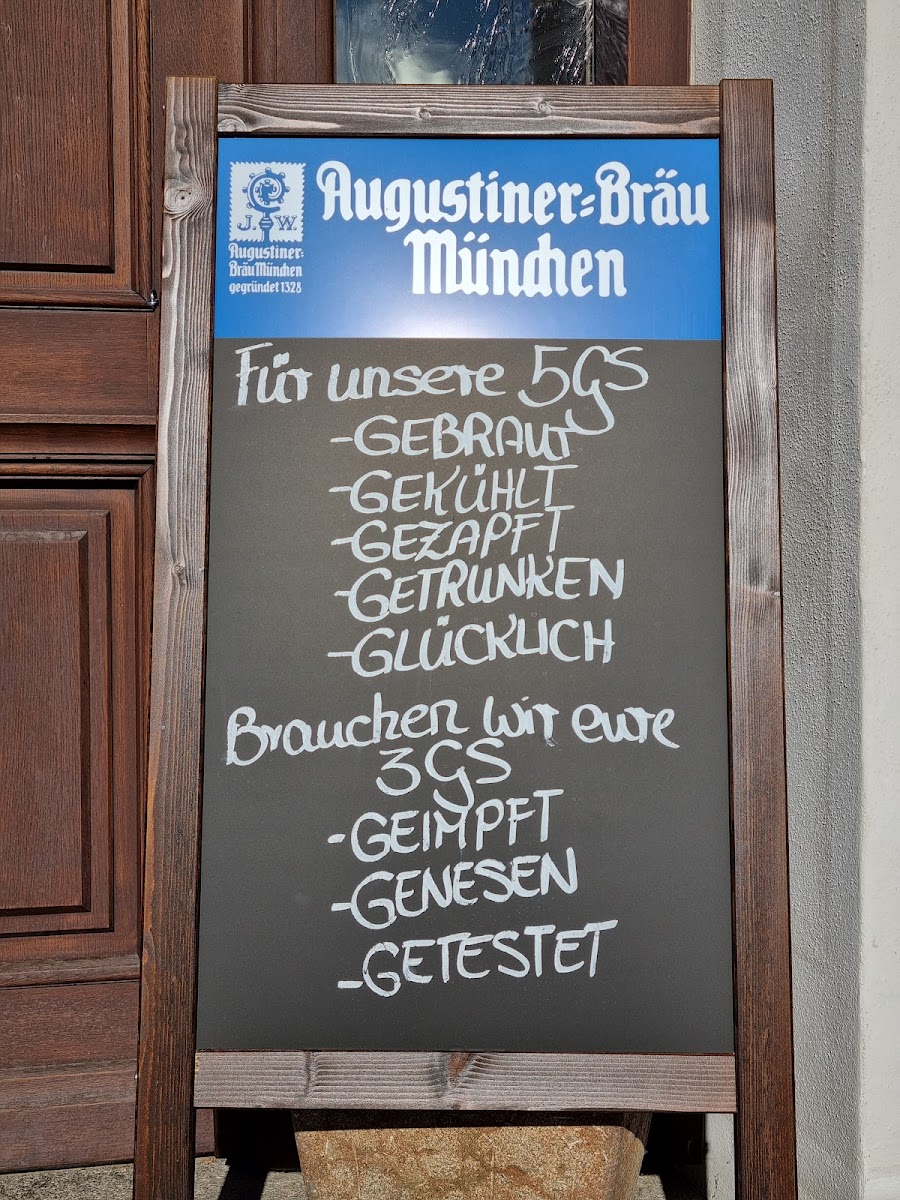 J. W.
Augustiner-
Bräu München
gegründet 1328
Augustiner-Bräu
München
Für unsere 5GS
-GEBRAUT
-GEKÜHLT
-GEZAPFT
-GETRUNKEN
-GLÜCKLICH
Brauchen wir eure
3GS
-GEIMPFT
-GENESEN
-GETESTET